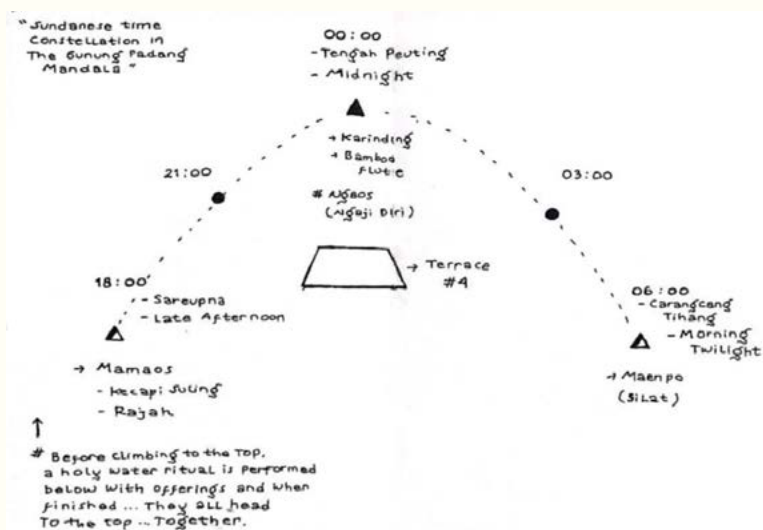 "Sundanese time
Constellation in
The Gunung Padang
Mandala"
00:00
-Tengah Peuting
- Midnight
→ Karinding
→ Bamboo
Flute
# Ngaos
(Ngaji Diri)
21:00
03:00
→ Terrace
#4
18:00'
- Sareupna
- Late Afternoon
→ Mamaos
- Kecapi Suling
- Rajah
06:00
- Carangcang
Tihang
- Morning
Twilight
→ Maenpo
(Silat)
↑
# Before climbing to the top,
a holy water ritual is performed
below with offerings and when
finished ... They all head
To the top ... Together.